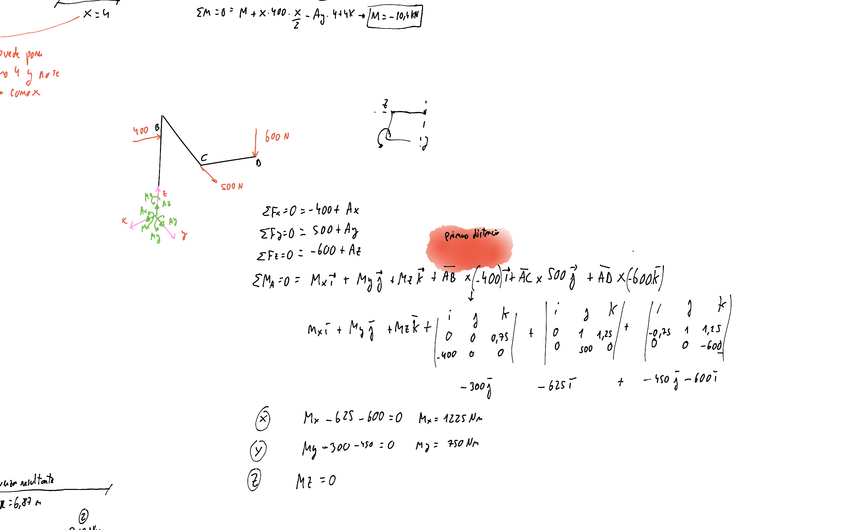 x=4
ΣM=0 = M + x·400·x/2 - Ay·4+4k → M=-10,4kN
puede
4 y no se
como x
B
400
600 N
C
D
500 N
z
x
y
z
ΣFx=0 = -400 + Ax
ΣFy=0 = 500 + Ay
ΣFz=0 = -600 + Az
primero distancia
ΣMA=0 = Mx i + My j + Mz k + AB × (-400) i + AC × 500 j + AD × (-600k)
Mx i + My j + Mz k + | i j k | + | i j k | + | i j k |
0 0 0,75 0 1 1,25 -0,75 1 1,25
-400 0 0 0 500 0 0 0 -600
-300 j -625 i + -450 j -600 i
X Mx -625 -600 = 0 Mx = 1225 Nm
Y My -300 -450 = 0 My = 750 Nm
Z Mz = 0
resultante
= 6,87 m
2